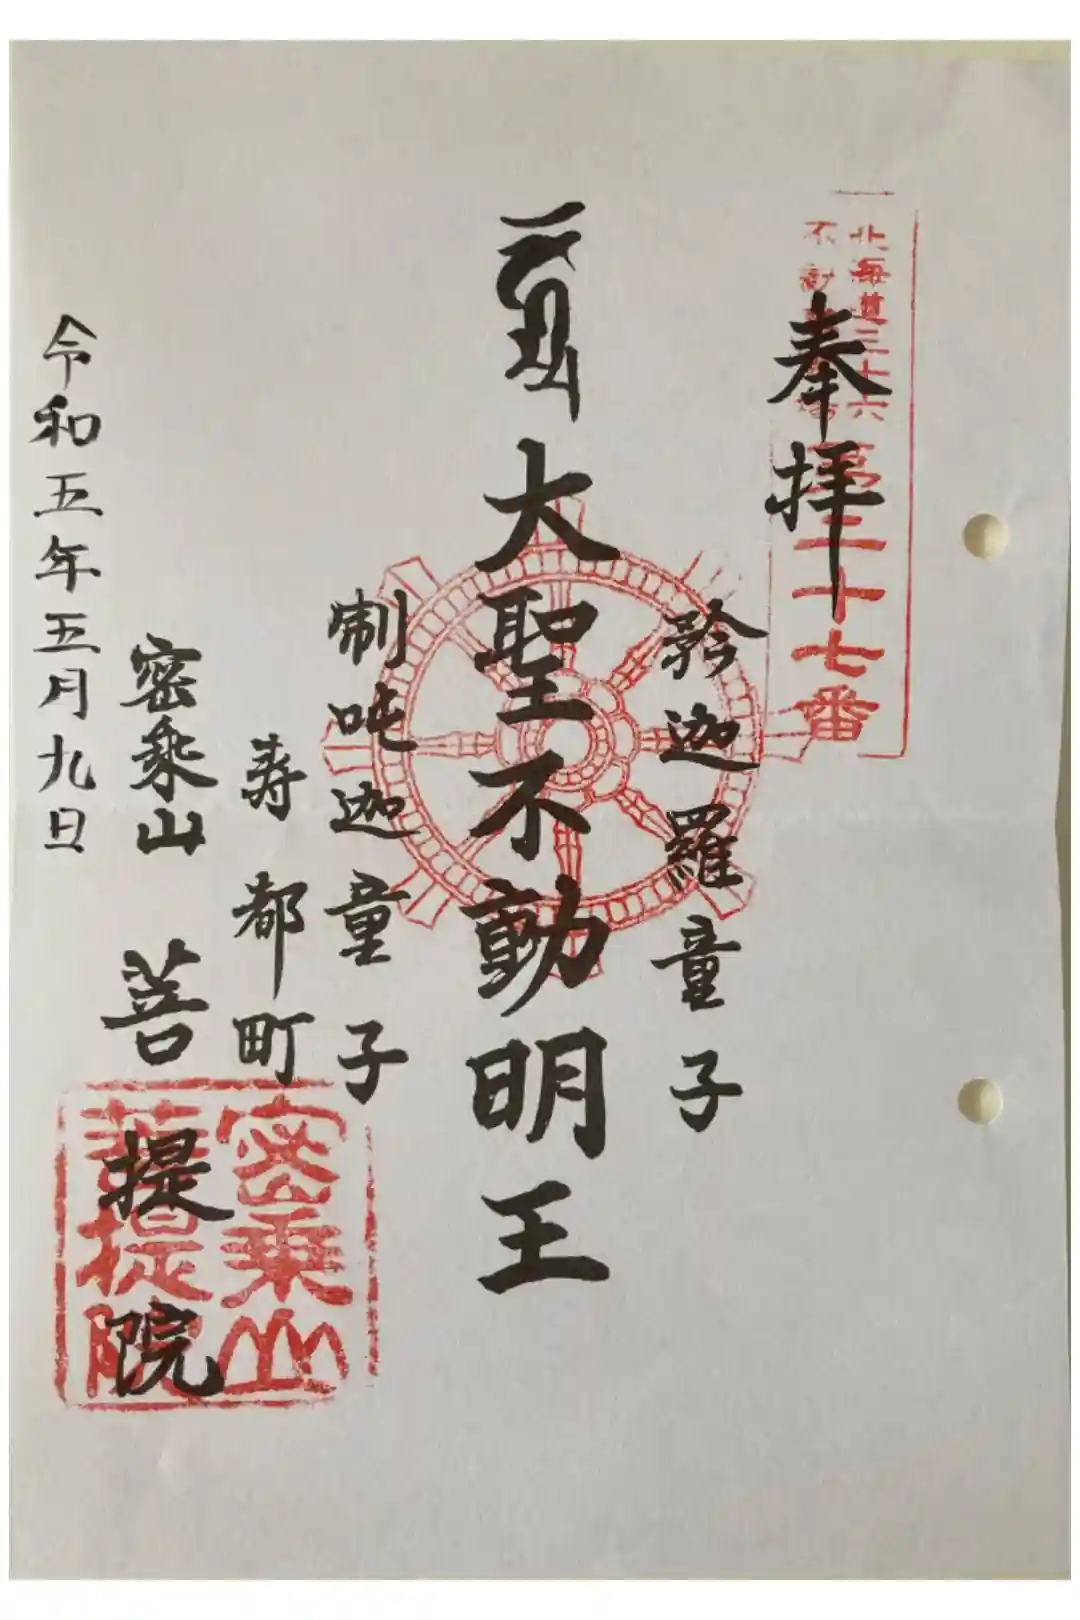 北海道三十六
不動尊霊場
第二十七番
奉拝
矜迦羅童子
大聖不動明王
制吒迦童子
寿都町
密乗山 菩提院
令和五年五月九日
密乗山
菩提院